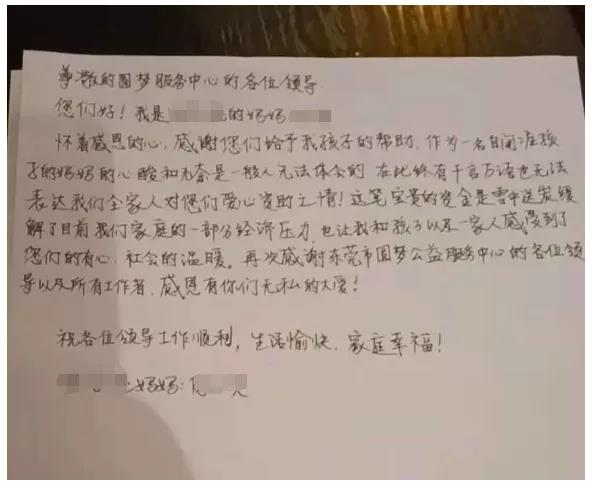 尊敬的圆梦服务中心的各位领导
您们好！我是 的妈妈
怀着感恩的心，感谢您们给予我孩子的帮助，作为一名自闭症孩
子的妈妈的心酸和无奈是一般人无法体会的 在此纵有千言万语也无法
表达我们全家人对您们爱心资助之情！这笔宝贵的资金是雪中送炭缓
解了目前我们家庭的一部分经济压力，也让我和孩子以及一家人感受到了
您们的有心，社会的温暖。再次感谢东莞市圆梦公益服务中心的各位领
导以及所有工作者，感恩有你们无私的大爱！
祝各位领导工作顺利，生活愉快，家庭幸福！
妈妈：